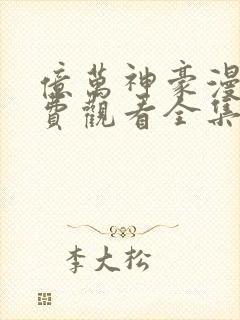 億萬神豪漫
費觀看全集
李大松